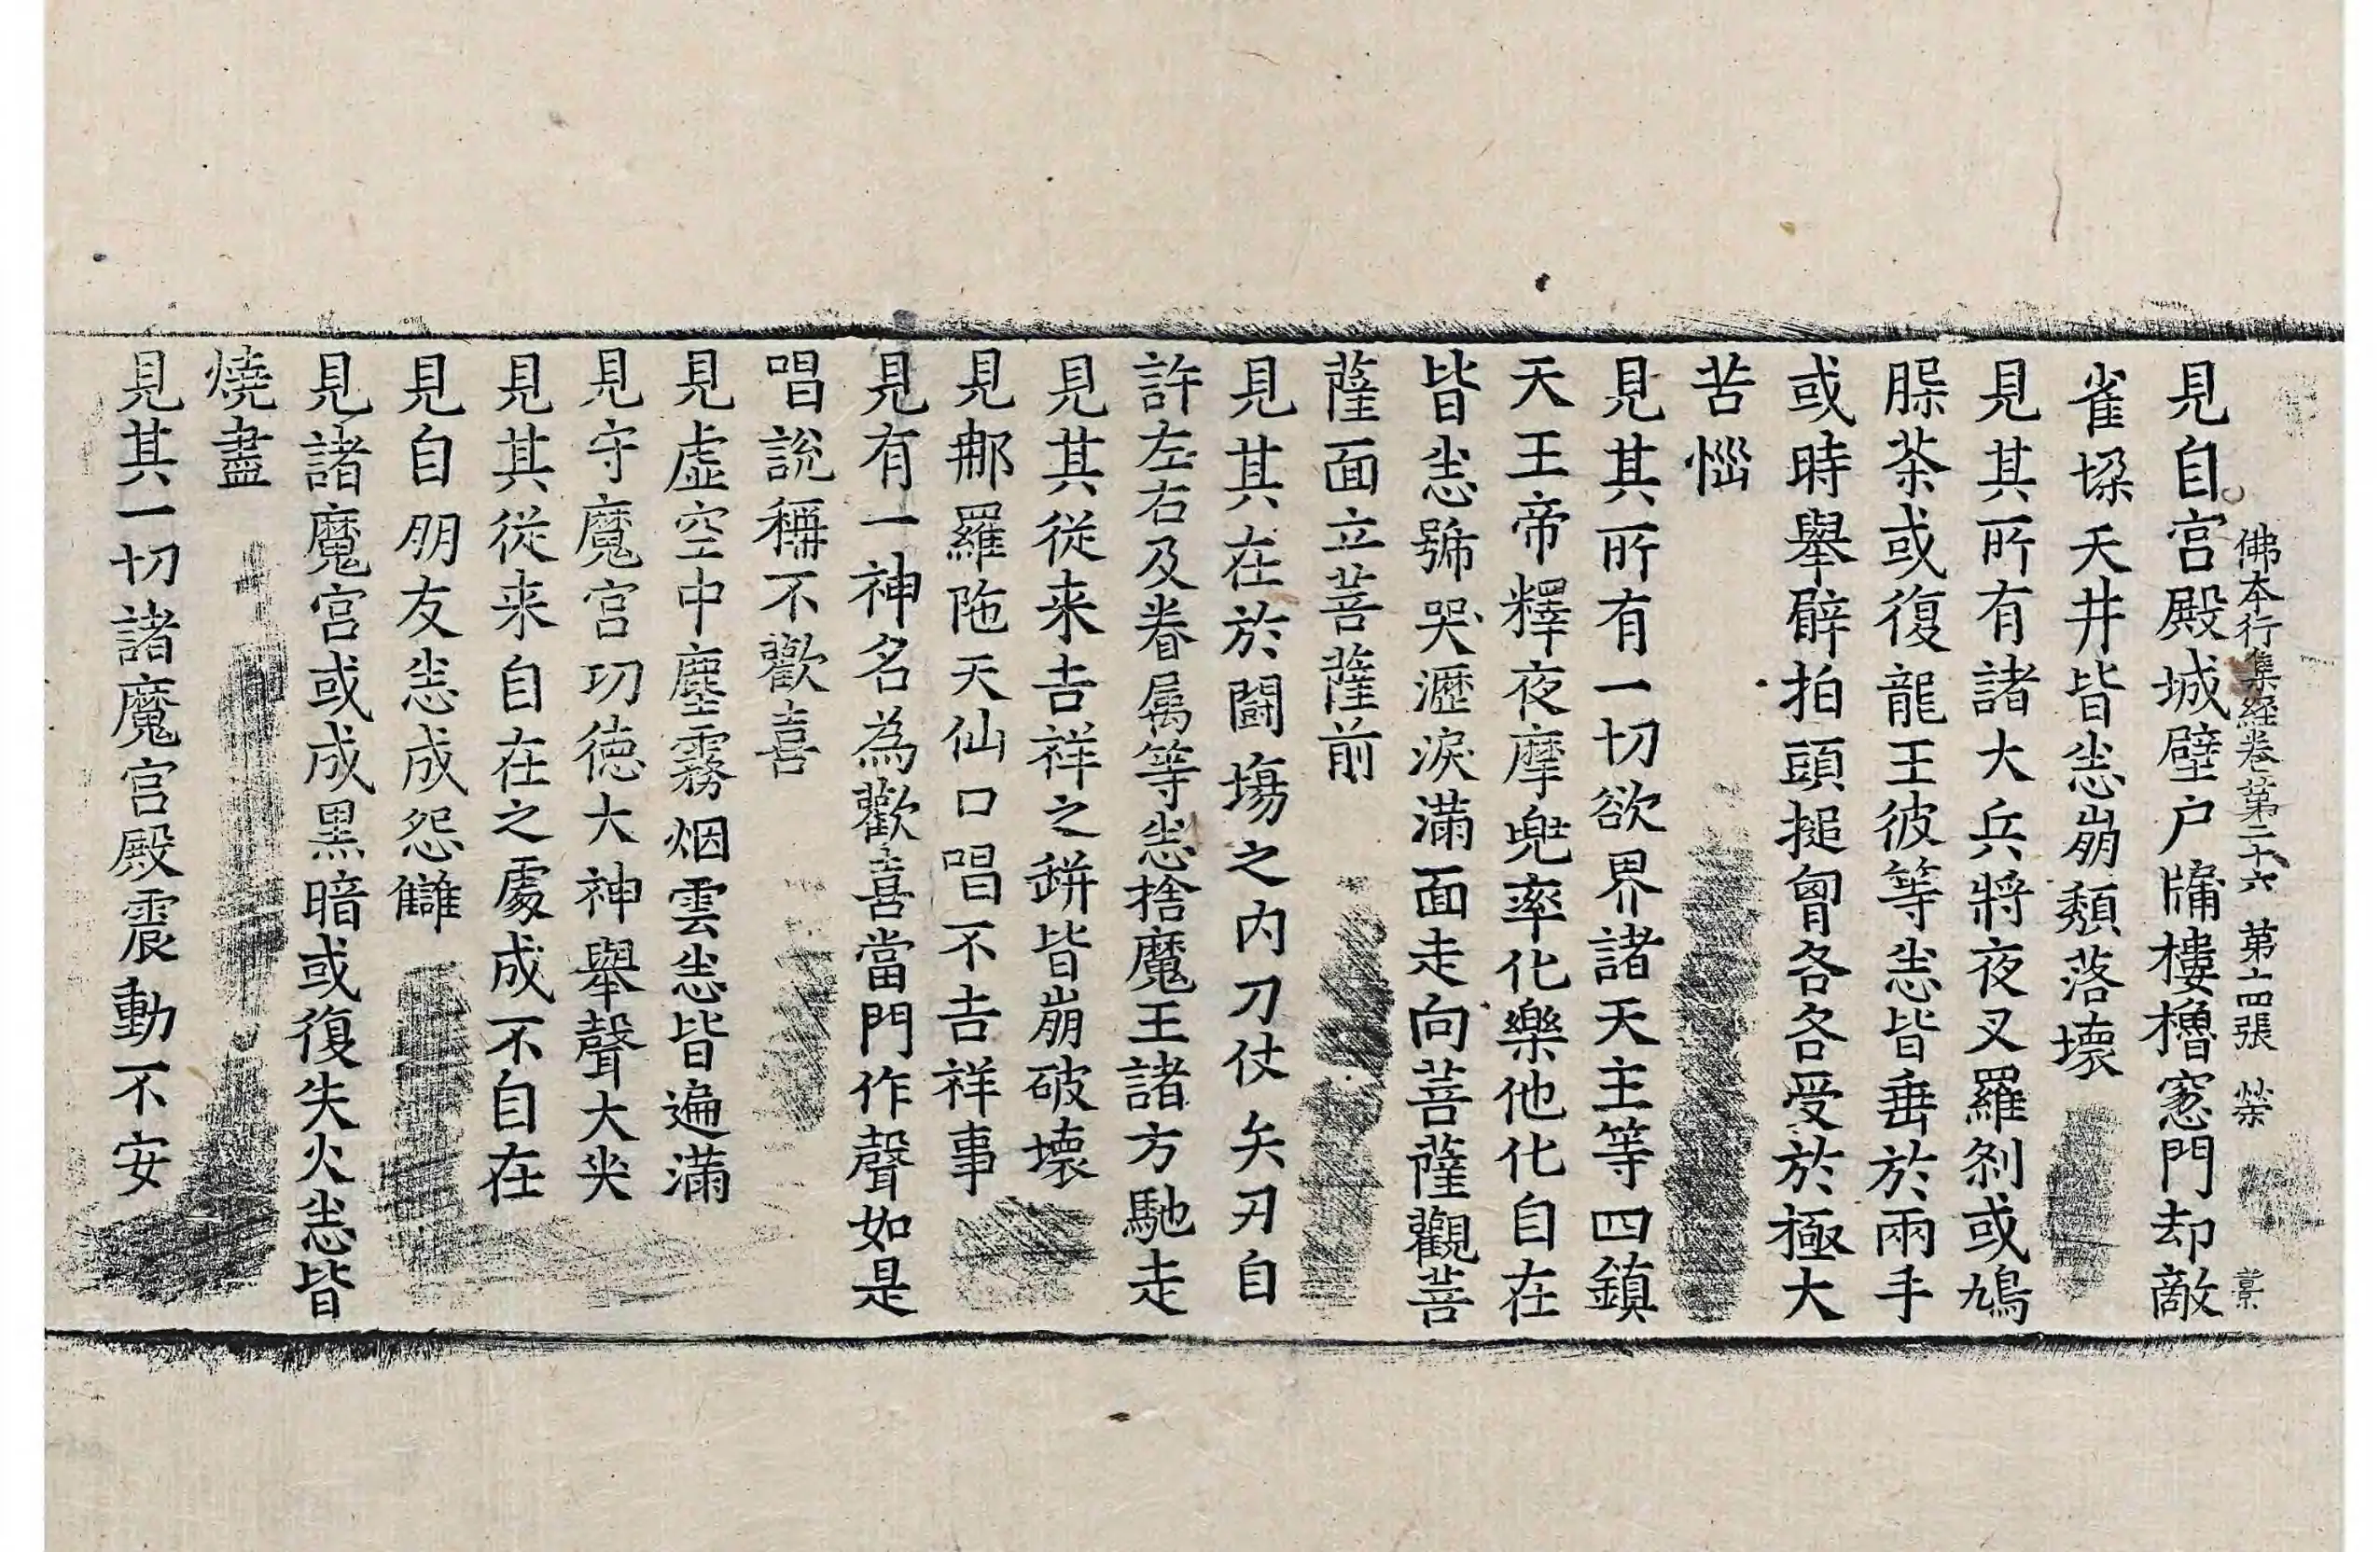 佛本行集經卷第二十六　第十四張　榮　景
見自宮殿城壁户牖樓櫓窓門却敵
雀墚天井皆悉崩頽落壞
見其所有諸大兵將夜叉羅刹或鳩
脲茶或復龍王彼等悉皆垂於兩手
或時舉臂拍頭搥胷各各受於極大
苦惱
見其所有一切欲界諸天主等四鎮
天王帝釋夜摩兜率化樂他化自在
皆悉號哭瀝淚滿面走向菩薩觀菩
薩面立菩薩前
見其在於鬪塲之内刀仗矢刃自
許左右及眷属等悉捨魔王諸方馳走
見其從来吉祥之缾皆崩破壞
見那羅陁天仙口唱不吉祥事
見有一神名為歡喜當門作聲如是
唱說稱不歡喜
見虛空中塵霧烟雲悉皆遍滿
見守魔宮功德大神舉聲大哭
見其從来自在之處成不自在
見自朋友悉成怨讎
見諸魔宮或成黑暗或復失火悉皆
燒盡
見其一切諸魔宮殿震動不安